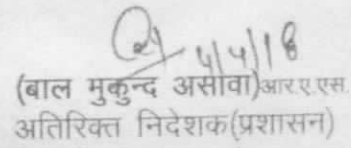 4/4/18
(बाल मुकुन्द असावा)आर.ए.एस.
अतिरिक्त निदेशक(प्रशासन)